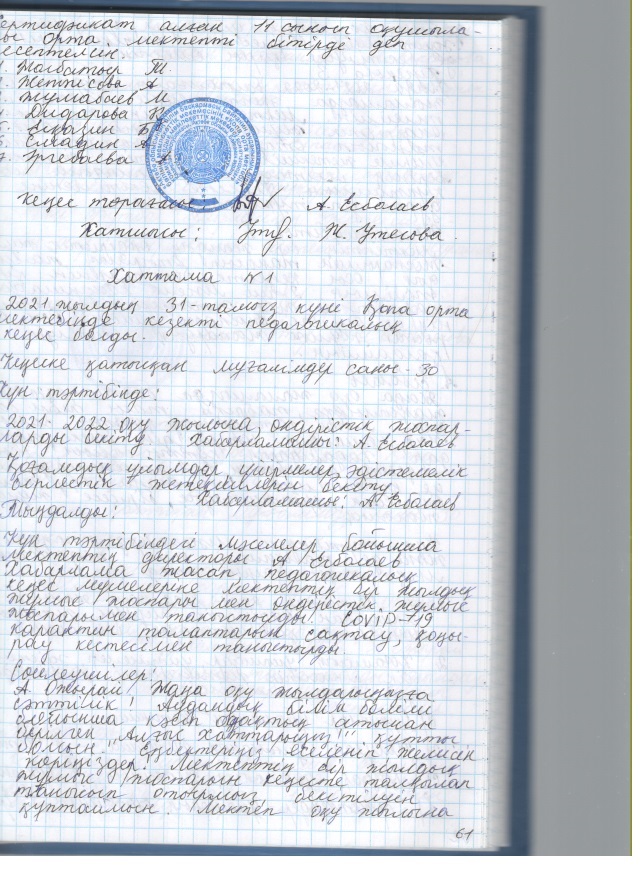 сертификат алған 11 сынып оқушыла-
ры орта мектепті бітірді деп
есептелсін.
Жолбатыр М.
Жетпісова А
Жумабаев И
Дидарова К
Б
Елкадин А
Ургебаева А
Кеңес төрағасы: А. Есболаев
Хатшысы: Ж. Утесова.
Хаттама №1
2021 жылдың 31-тамыз күні Қопа орта
мектебінде кезекті педагогикалық
кеңес болды.
Кеңеске қатысқан мұғалімдер саны - 30
Күн тәртібінде:
2021-2022 оқу жылына өндірістік жоспар-
ларды бекіту Хабарламашы: А. Есболаев
Қоғамдық ұйымдар, үйірмелер, әдістемелік
бірлестік жетекшілерін бекіту
Хабарламашы: А Есболаев
Тыңдалды:
Күн тәртібіндегі мәселелер бойынша
мектептің директоры А Есболаев
хабарлама жасап, педагогикалық
кеңес мүшелеріне мектептің бір жылдық
жұмыс жоспары мен өндірістік жұмыс
жоспарымен таныстырды. COVID-19
карантин талаптарын сақтау, қоңы-
рау кестесімен таныстырды
Сөйлеушілер:
А. Жаңа оқу жылдарыңызға
сәттілік! Аудандық білім бөлімі
бойынша кәсіп одақтың атынан
берілген "Алғыс хаттарыңыз" құтты
болсын. Еңбектеріңіз еселеніп, жемісін
көріңіздер. Мектептің бір жылдық
жұмыс жоспарын кеңесте талқылап
танысып отырмыз, бекітілуін
құптаймын. Мектеп оқу жылына
61